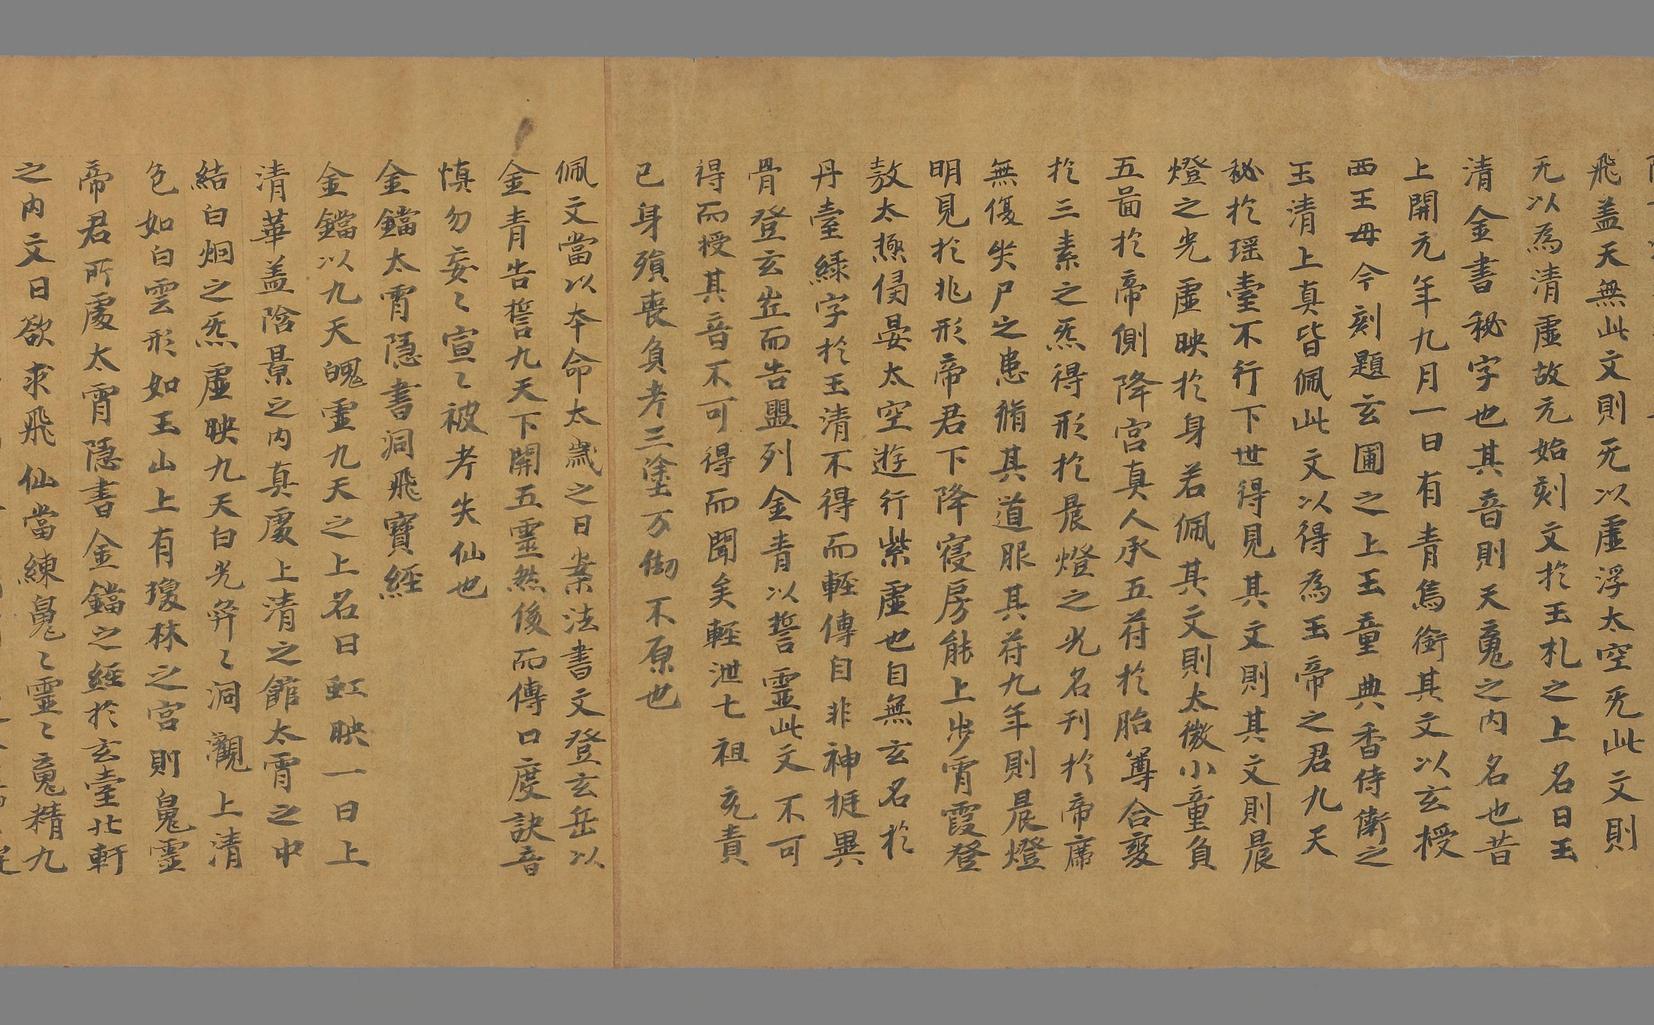 飛盖天無此文則无以虛浮太空无此文則
无以為清虛故元始刻文於玉札之上名曰玉
清金書秘字也其音則天魂之内名也昔
上開元年九月一日有青鳥銜其文以玄授
西王母今刻題玄圃之上玉童典香侍衛之
玉清上真皆佩此文以得為玉帝之君九天
秘於瑶臺不行下世得見其文則其文則晨
燈之光虛映於身若佩其文則太微小童負
五啚於帝側降宮真人承五苻於胎尊合變
於三素之炁得形於晨燈之光名刊於帝席
無復失尸之患脩其道服其苻九年則晨燈
明見於兆形帝君下降寝房能上步霄霞登
敖太極偃晏太空遊行紫虛也自無玄名於
丹臺緑字於玉清不得而輕傳自非神挺異
骨登玄丘而告盟列金青以誓靈此文不可
得而授其音不可得而聞矣輕泄七祖充責
已身殞喪負考三塗万劫不原也
佩文當以本命太歲之日案法書文登玄岳以
金青告誓九天下開五靈然後而傳口度訣音
慎勿妄〻宣〻被考失仙也
金鐺太霄隱書洞飛寶經
金鐺以九天魄靈九天之上名曰虹映一曰上
清華盖陰景之内真處上清之館太霄之中
結白烟之炁虛映九天白光弈〻洞觀上清
色如白雲形如玉山上有瓊林之宮則鬼靈
帝君所處太霄隱書金鐺之經於玄臺北軒
之内文曰欲求飛仙當練鬼〻靈〻魂精九